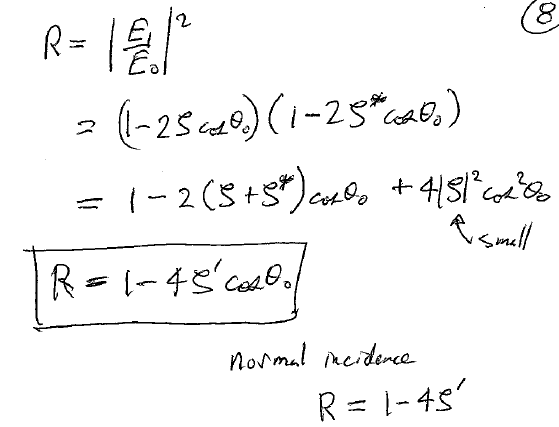 ⑧
R = |E₁/E₀|²
= (1-2ζ cosθ₀)(1-2ζ* cosθ₀)
= 1-2(ζ+ζ*) cosθ₀ + 4|ζ|² cos²θ₀
small
R = 1-4ζ' cosθ₀
normal incidence
R = 1-4ζ'